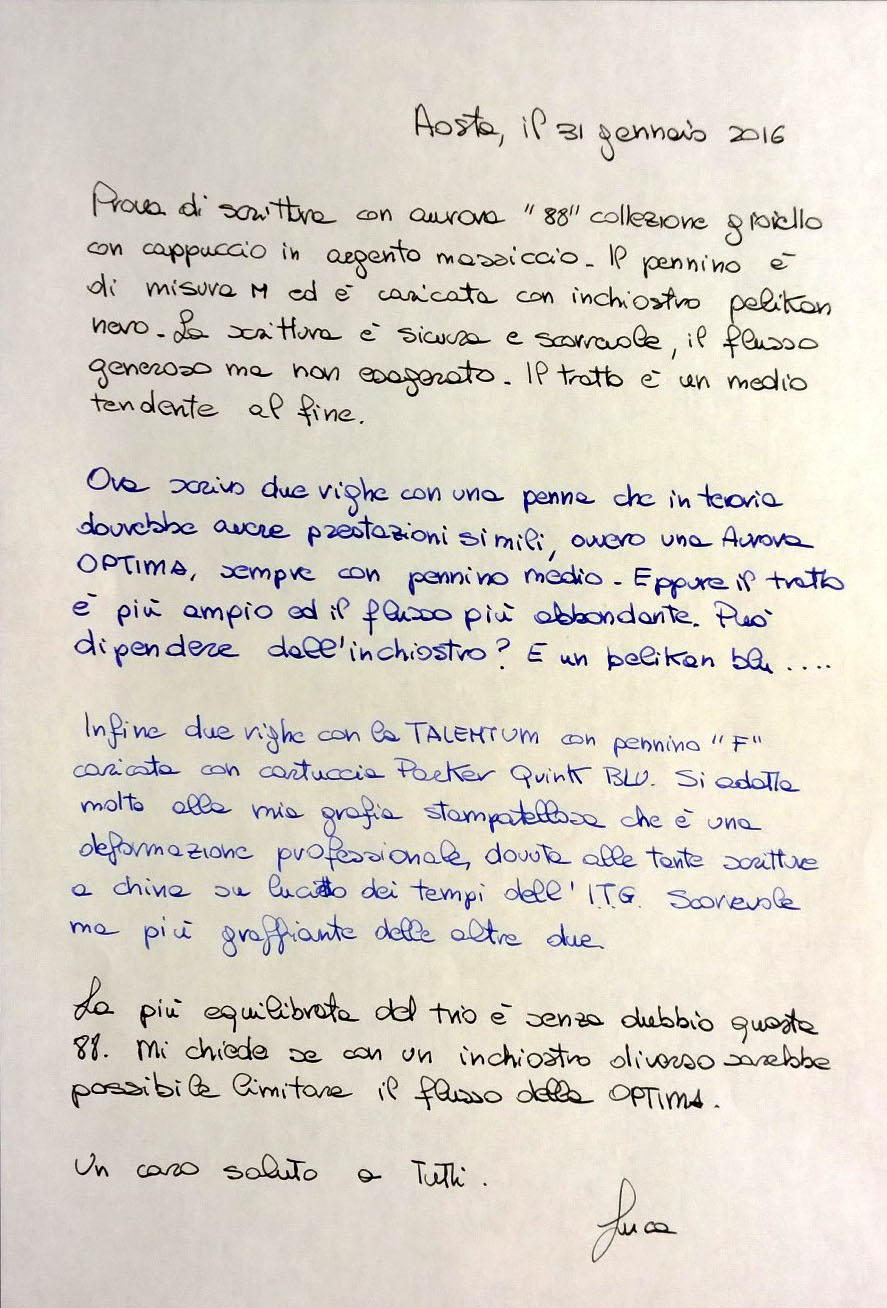 Aosta, il 31 gennaio 2016
Prova di scrittura con aurora "88" collezione gioiello
con cappuccio in argento massiccio. Il pennino è
di misura M ed è caricata con inchiostro pelikan
nero. La scrittura è sicura e scorrevole, il flusso
generoso ma non esagerato. Il tratto è un medio
tendente al fine.
Ora scrivo due righe con una penna che in teoria
dovrebbe avere prestazioni simili, ovvero una Aurora
OPTIMA, sempre con pennino medio. Eppure il tratto
è più ampio ed il flusso più abbondante. Può
dipendere dall'inchiostro? E un pelikan blu ....
Infine due righe con la TALENTUM con pennino "F"
caricata con cartuccia Parker Quink BLU. Si adatta
molto alla mia grafia stampatellosa che è una
deformazione professionale, dovuta alle tante scritture
a china su lucido dei tempi dell' I.T.G. Scorrevole
ma più graffiante delle altre due.
La più equilibrata del trio è senza dubbio questa
88. Mi chiedo se con un inchiostro diverso sarebbe
possibile limitare il flusso della OPTIMA.
Un caro saluto a Tutti.
Luca